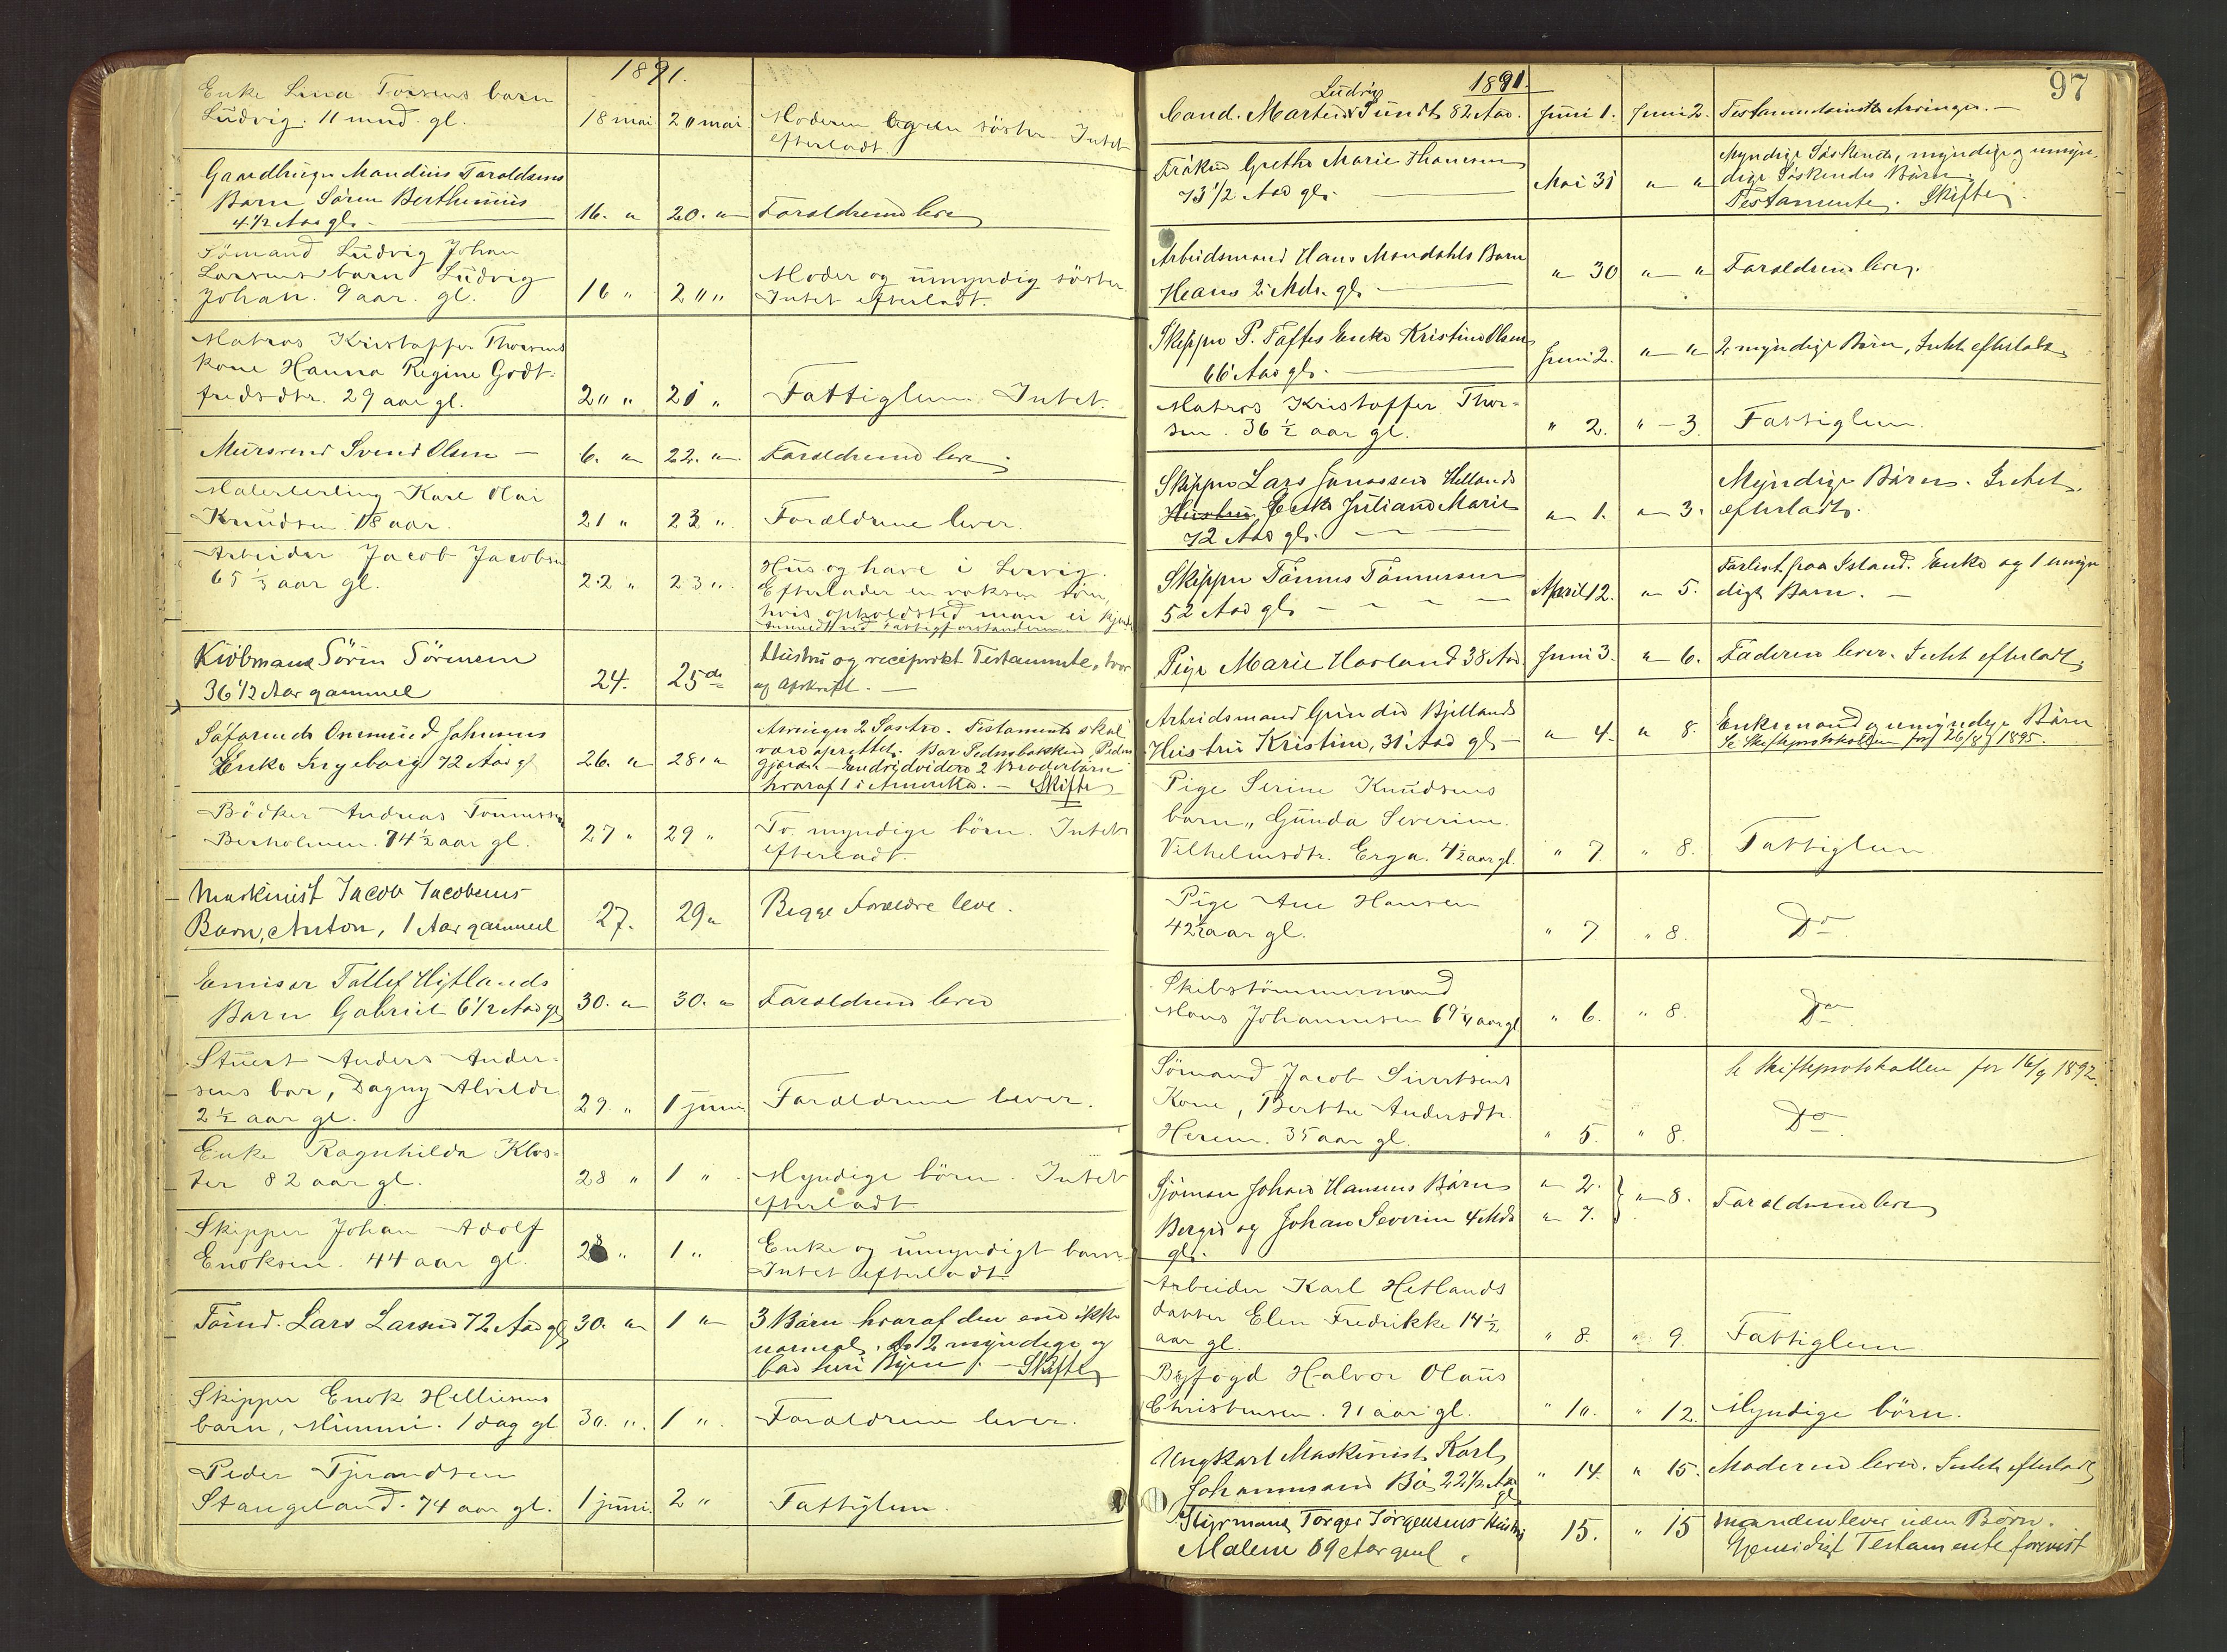 1891.
Enke Lina Torsens barn
Ludvig. 11 mnd. gl. 18 mai 20 mai Moderen søster. Intet
efterladt.
Gaardbruger Mandius Taraldsens
Barn Sören Berthinius
4 1/2 Aar gl. 16. " 20. " Forældrene lever
Sømand Ludvig Johan
Larsens barn Ludvig
Johan. 9 aar. gl. 16 " 20 " Moder og umyndig søster.
Intet efterladt.
Matros Kristoffer Thorsens
kone Hanna Regine Godt-
fredsdtr. 29 aar gl. 20 " 21 " Fattiglem. Intet.
Mursvend Svend Olsen — 6. " 22. " Forældrene lever
Malerlerling Karl Olai
Knudsen 18 aar. 21 " 23 " Forældrene lever.
Arbeider Jacob Jacobsen
65 1/3 aar gl. 22 " 23 " Hus og have i
Efterlader en voksen søn,
hvis opholdsted man ei kjender
Kiöbmand Sörin Sörensen
36 1/2 Aar gammel 24. 25de Hustru og reciprokt Testamente,
og Afskrift. —
Søfarende Onmund Johnsens
Enke Ingeborg 72 Aar gl 26. " 28. " Arvinger 2 Søstre. Testamente skal
være oprettet.
2 Broderbörn
hvoraf 1 i Amerika. — Skifte
Bödker Andreas Tønnessen
Berholmen. 74 1/2 aar gl. 27 " 29 " To myndige börn. Intet
efterladt.
Maskinist Jacob Jacobsens
Barn, Anton, 1 Aar gammel 27. 29 " Begge Forældre leve.
Emisær Tollef Hytlands
Barn Gabriel 6 1/2 Aar gl 30. " 30. " Forældrene lever
Stuert Anders Ander-
sens bar, Dagny Alvilde
2 1/2 aar gl. 29 " 1 juni Forældrene lever.
Enke Ragnhilda Klos-
ter 82 aar gl. 28 " 1 " Myndige börn. Intet
efterladt
Skipper Johan Adolf
Enoksen. 44 aar gl. 28 " 1 " Enke og umyndigt barn
Intet efterladt.
Tømd. Lars Larsen 72 Aar gl. 30. " 1 " 3 Børn hvoraf den ene ikke
normal, de 2 myndige og
Byen. — Skifte
Skipper Enok Helliesens
barn, Mimmi. 1 dag gl 30. " 1 " Forældrene lever.
Peder Tjerandsen
Stangeland. 74 aar gl. 1 juni. 2 " Fattiglem.
97
1891.
Ludvig
Cand. Marten Sundt 82 Aar. Juni 1. Juni 2. Testamentariske Arvinger. —
Frøken Grethe Marie Hansen
73 1/2 Aar gl. — Mai 31 " " Myndige Søskende, myndige og umyn-
dige Søskendes Børn.
Testamente. Skifte.
Arbeidsmand Hans Mandahls Barn
Hans 2 Mdr. gl. — " 30 " " Forældrene lever.
Skipper P. Taftes Enke Kristine Olsen
66 Aar gl. — Juni 2. " " 2 myndige Børn, Intet efterladt
Matros Kristoffer Thor-
sen. 36 1/2 aar gl. " 2. " 3. Fattiglem.
Skipper Lars Jonassen Hellands
Hustru Enke Juliane Marie
72 Aar gl. — " 1. " 3. Myndige Børn. Intet
efterladt.
Skipper Tönnes Tönnessen
52 Aar gl. — April 12. " 5. Forlist paa Island. Enke og 1 umyn
digt Barn. —
Pige Marie Hovland 38 Aar Juni 3. " 6. Faderen lever. Intet efterladt
Arbeidsmand Bjellands
Hustru Kristine, 31 Aar gl. " 4. " 8. Enkemand og umyndige Börn
Se Skifteprotokollen for 26/8 1895.
Pige Serine Knudsens
barn, Gunda Severine
Vilhelmsdtr. Erga. 4 1/2 aar gl. " 7. " 8. Fattiglem
Pige Ane Hansen
42 1/2 aar gl. " 7 " 8. Do
Skibstömmermand
Mons Johannesen 69 1/4 aar gl " 6. " 8. Do
Sömand Jacob Sivertsens
Kone, Berthe Andersdtr.
35 aar gl. " 5. " 8. Se Skifteprotokollen for 16/9 1892.
Do
Sjömand Johan Hansens Börn
Berges og Johan Severin 4 Mdr
gl. " 2. " 7. " 8. Forældrene lever
Arbeider Karl Hetlands
datter Elen Fredrikke 14 1/2
aar gl. " 8. " 9. Fattiglem
Byfogd Halvor Olaus
Christensen. 91 aar gl. " 10. " 12. Myndige börn.
Ungkarl Maskinist Karl
Johannesen Bö 22 1/2 Aar
gl " 14. " 15. Moderen lever. Intet efterladt
Styrmand Torger Törgensens Hustru
Malene 69 Aar gml. 15. " 15 Manden lever uden Börn.
Gjensidigt Testamente forevist